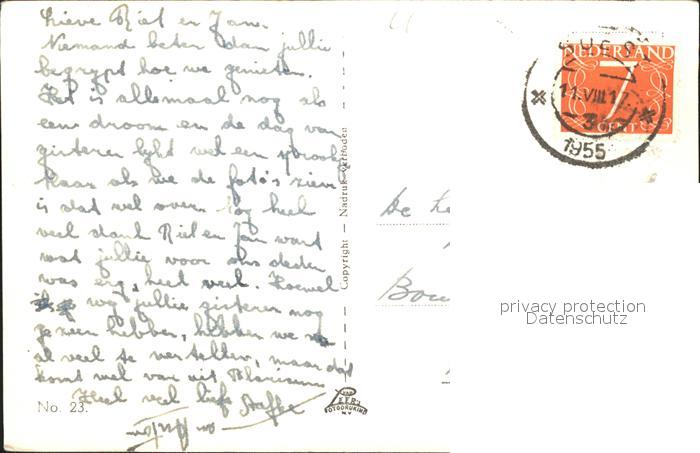 Lieve Riet en Jan.
Niemand beter dan jullie
begrypt hoe we genieten.
Het is allemaal nog als
een droom en de dag van
gisteren lykt wel een sprookje
Maar als we de foto's zien
is dat wel over. Nog heel
veel dank Riet en Jan want
wat jullie voor ons deden
was erg, heel veel. Hoewel
wij jullie gisteren nog
gezien hebben, hebben we
al veel te vertellen, maar dat
komt wel van uit Blaricum
Heel veel liefs
en
No. 23.
Copyright — Nadruk verboden
VAN LEER'S
FOTODRUKIND
N.V.
NEDERLAND
7
CENT
11.VIII.17
1955
De
Bou
privacy protection
Datenschutz